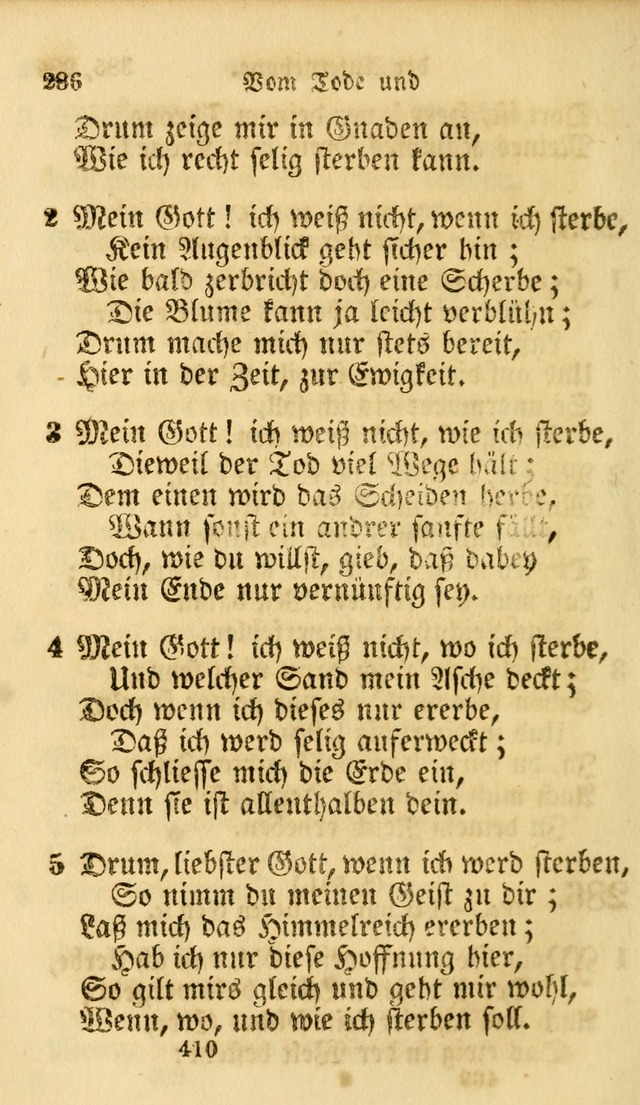 286 Vom Tode und
Drum zeige mir in Gnaden an,
Wie ich recht selig sterben kann.
2 Mein Gott! ich weiß nicht, wenn ich sterbe,
Kein Augenblick geht sicher hin;
Wie bald zerbricht doch eine Scherbe;
Die Blume kann ja leicht verblühn;
Drum mache mich nur stets bereit,
Hier in der Zeit, zur Ewigkeit.
3 Mein Gott! ich weiß nicht, wie ich sterbe,
Dieweil der Tod viel Wege hält;
Dem einen wird das Scheiden herbe,
Wann sonst ein andrer sanfte fällt,
Doch, wie du willst, gieb, daß dabey
Mein Ende nur vernünftig sey.
4 Mein Gott! ich weiß nicht, wo ich sterbe,
Und welcher Sand mein Asche deckt;
Doch wenn ich dieses nur ererbe,
Daß ich werd selig auferweckt;
So schliesse mich die Erde ein,
Denn sie ist allenthalben dein.
5 Drum, liebster Gott, wenn ich werd sterben,
So nimm du meinen Geist zu dir;
Laß mich das Himmelreich ererben;
Hab ich nur diese Hoffnung hier,
So gilt mirs gleich und geht mir wohl,
Wenn, wo, und wie ich sterben soll.
410